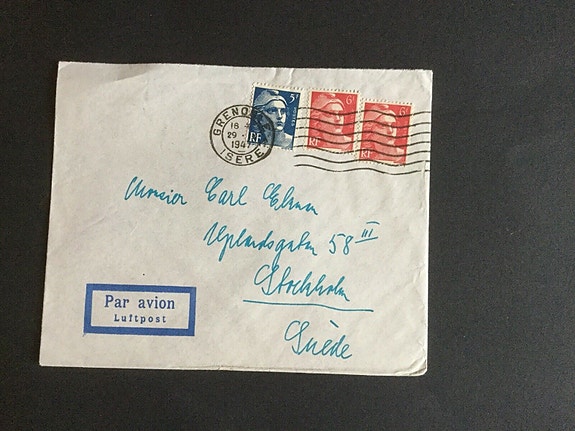 5F
6F
6F
RF
RF
RF
GRENOBLE
16
29
1947
ISERE
Monsieur Carl Ekman
Uplandsgatan 58 III
Stockholm
Suède
Par avion
Luftpost